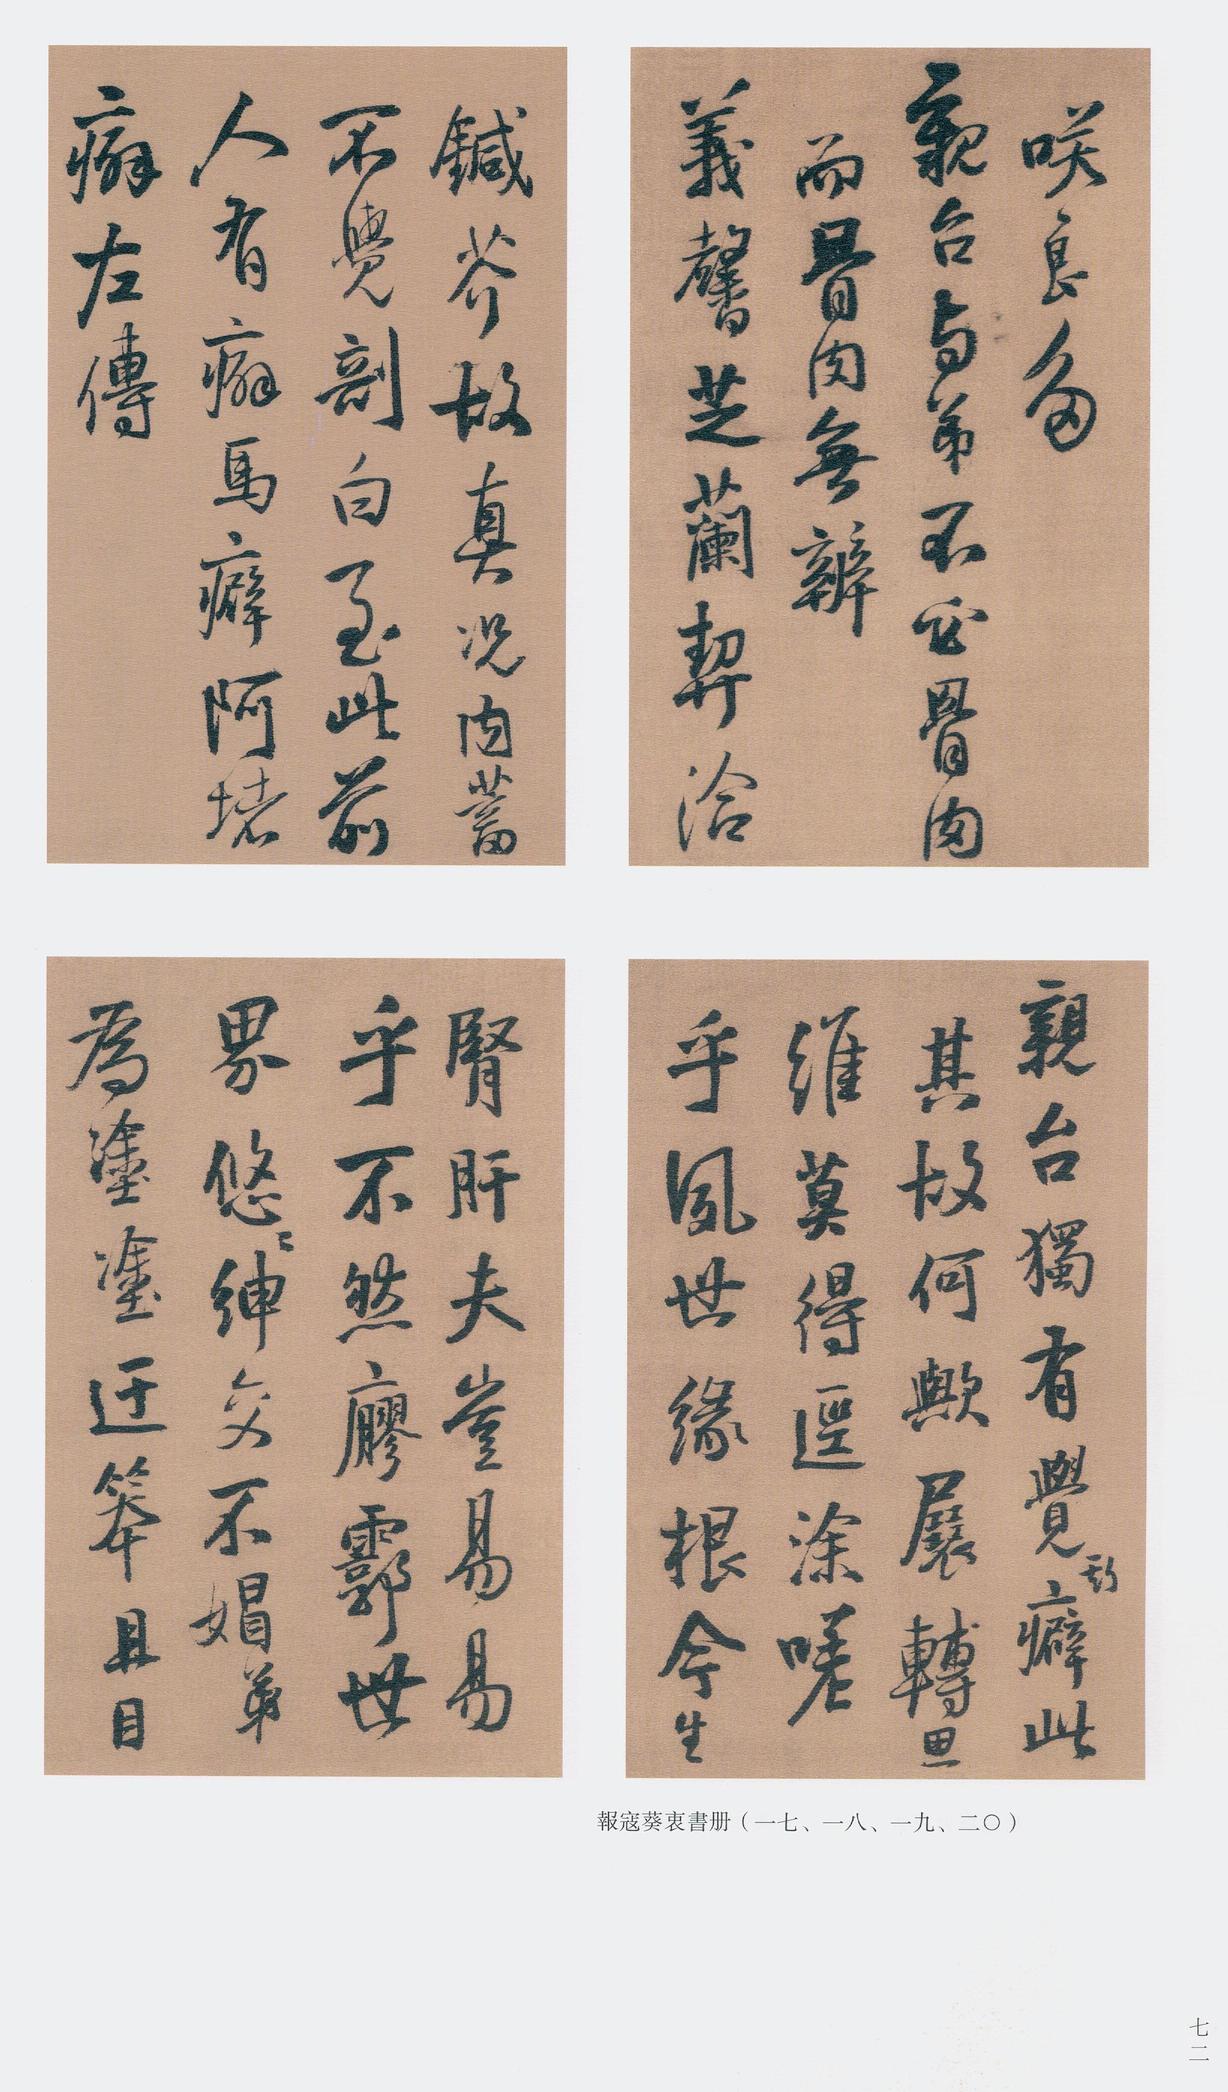 咲良多
親台与弟不必骨肉
而骨肉無辨
義馨芝蘭契洽
鍼芥故真況内蓄
不覺剖白至此前
人有癖馬癖阿堵
癖左傳
親台獨有覺斯癖此
其故何歟展轉思
維莫得逕涂嗟
乎夙世緣根今生
腎肝夫豈易易
乎不然廖郭世
界悠〻紳交不媢弟
為塗塗迂筆且目
報寇葵衷書册（一七、一八、一九、二〇）
七二